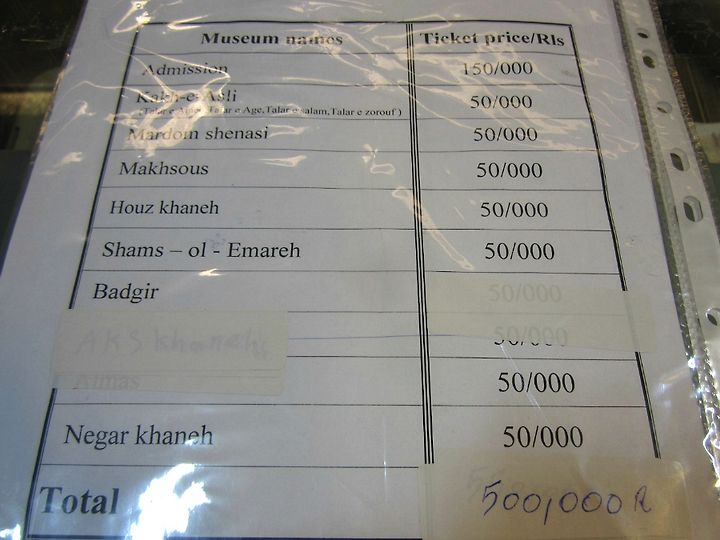 Museum names Ticket price/Rls
Admission 150/000
Kakh-e-Asli 50/000
Mardom shenasi 50/000
Makhsous 50/000
Houz khaneh 50/000
Shams – ol - Emareh 50/000
Badgir 50/000
AKS khaneh 50/000
Almas 50/000
Negar khaneh 50/000
Total 500,000 R